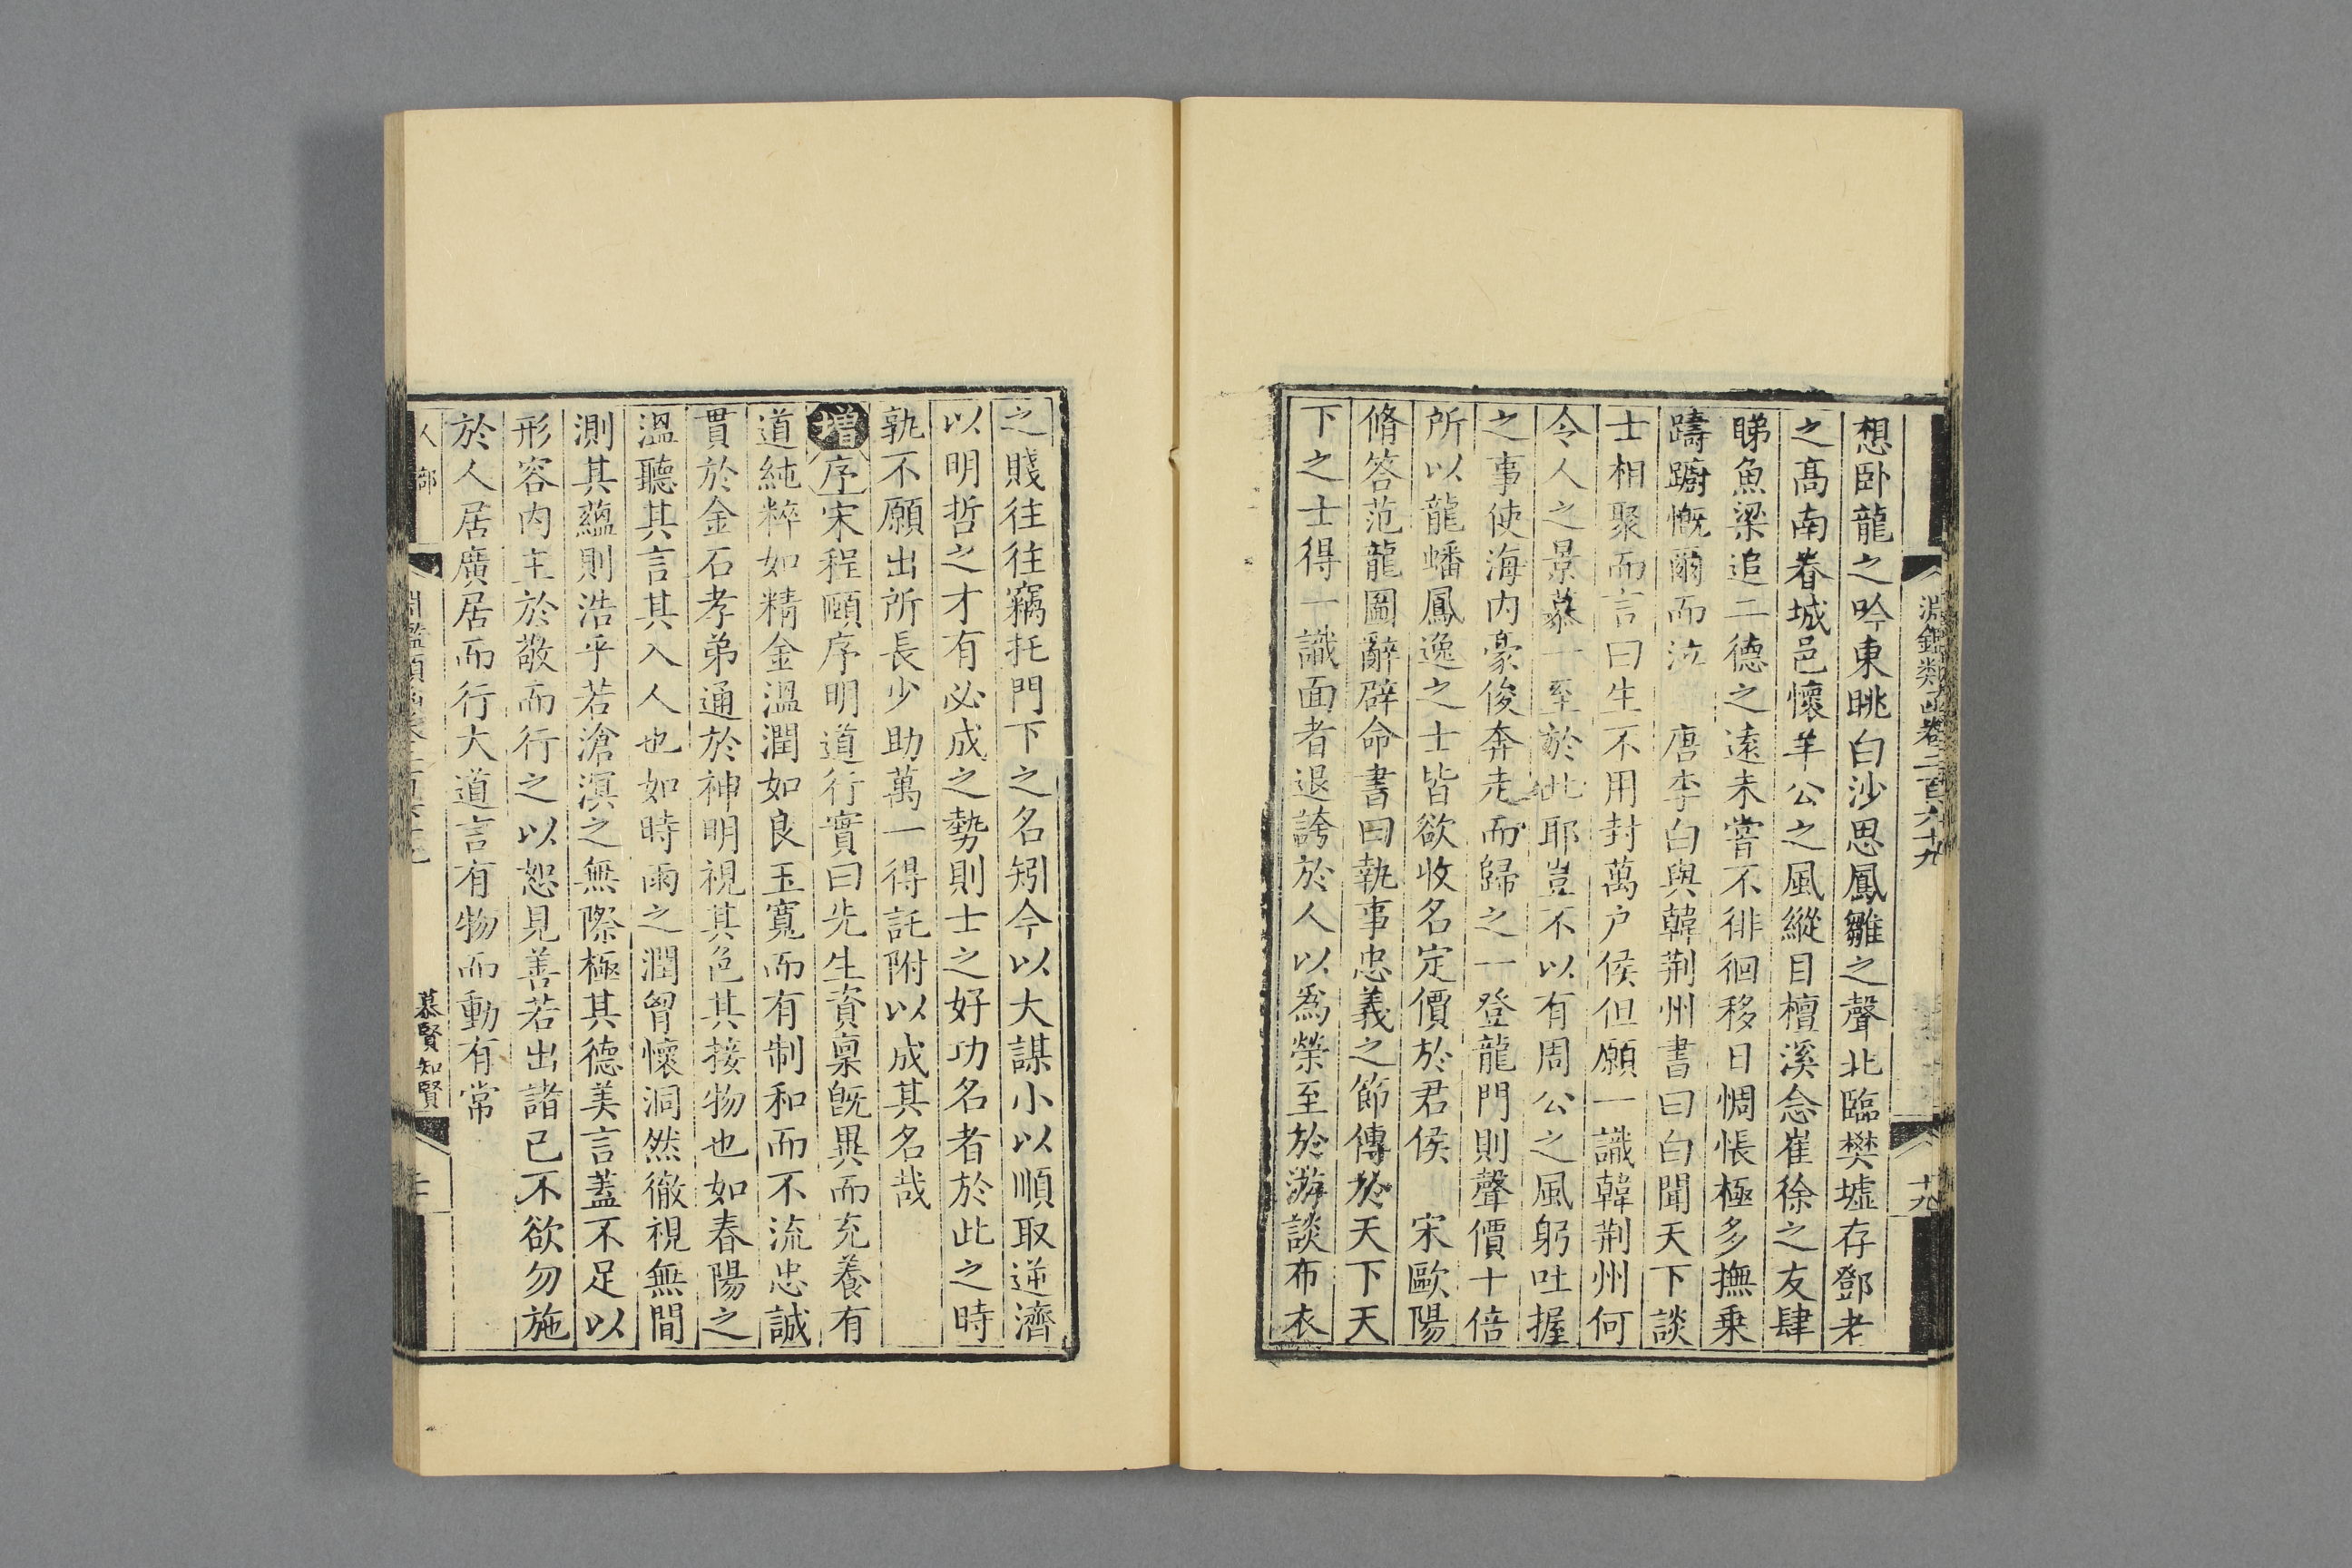 淵鑑類函卷二百六十九
十九
想卧龍之吟東眺白沙思鳳雛之聲北臨樊墟存鄧老
之髙南眷城邑懷羊公之風縱目檀溪念崔徐之友肆
睇魚梁追二德之遠未嘗不徘徊移日惆悵極多撫乗
躊躕慨爾而泣　唐李白與韓荆州書曰白聞天下談
士相聚而言曰生不用封萬户侯但願一識韓荆州何
令人之景慕一至於此耶豈不以有周公之風躬吐握
之事使海内豪俊奔走而歸之一登龍門則聲價十倍
所以龍蟠鳳逸之士皆欲收名定價於君侯　宋歐陽
脩答范龍圖辭辟命書曰執事忠義之節傳於天下天
下之士得一識面者退誇於人以為榮至於游談布衣
之賤往往竊托門下之名矧今以大謀小以順取逆濟
以明哲之才有必成之勢則士之好功名者於此之時
孰不願出所長少助萬一得託附以成其名哉
增序宋程頤序明道行實曰先生資稟旣異而充養有
道純粹如精金溫潤如良玉寬而有制和而不流忠誠
貫於金石孝弟通於神明視其色其接物也如春陽之
溫聽其言其入人也如時雨之潤胷懷洞然徹視無間
測其蘊則浩乎若滄溟之無際極其德美言蓋不足以
形容内主於敬而行之以恕見善若出諸已不欲勿施
於人居廣居而行大道言有物而動有常
人部
慕賢知賢